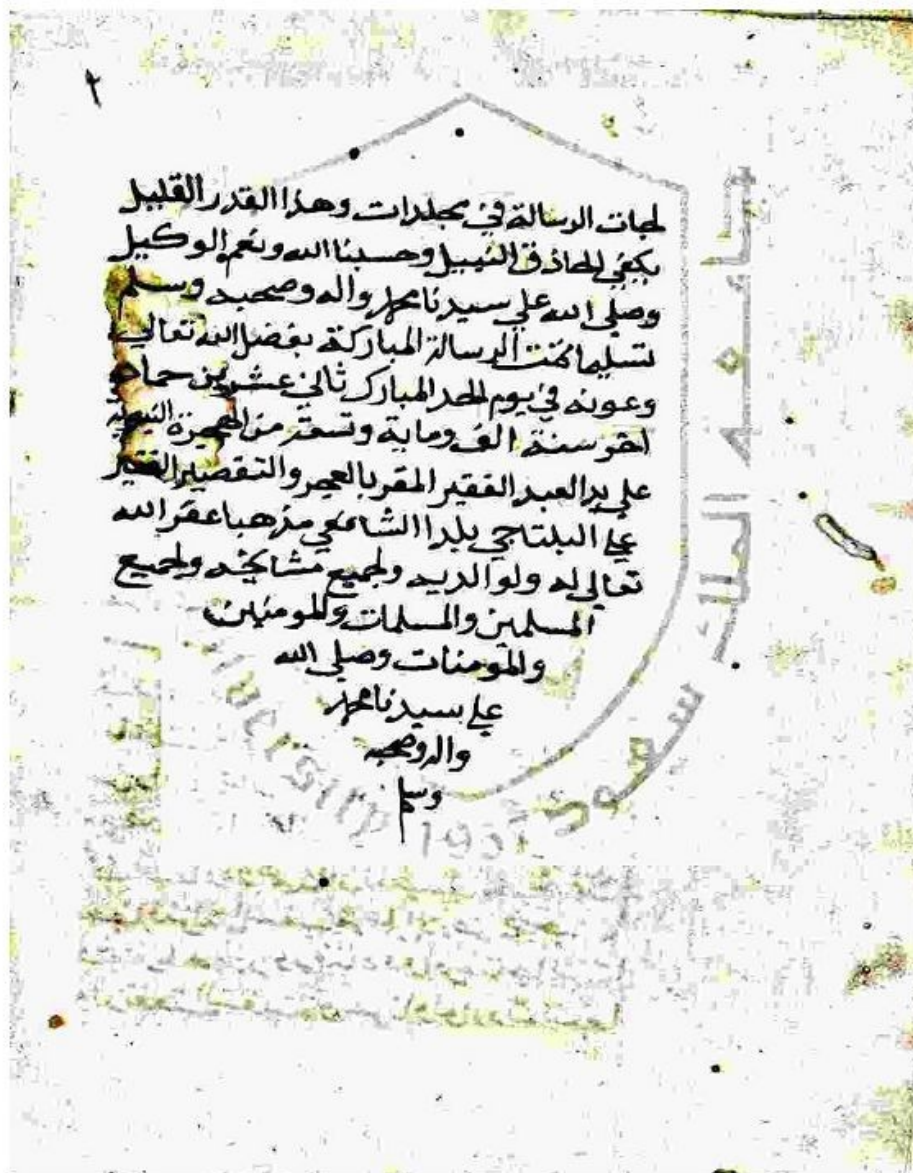 لجات الرسالة في مجلدات وهذا القدر القليل
يكفي الحاذق النبيل وحسبنا الله ونعم الوكيل
وصلى الله علي سيدنا محمد واله وصحبه وسلم
تسليما تمت الرسالة المباركة بفضل الله تعالي
وعونه في يوم الحد المبارك ثاني عشرين جماد
اخر سنة الف وماية وتسعة من الهجرة النبويه
علي يد العبد الفقير المقر بالعجز والتقصير الفقير
علي البلتاجي بلدا الشافعي مذهبا غفر الله
تعالي له ولوالديه ولجميع مشايخه ولجميع
المسلمين والمسلمات والمومنين
والمومنات وصلي الله
علي سيدنا محمد
واله وصحبه
وسلم
جامعة الملك سعود
University 1957